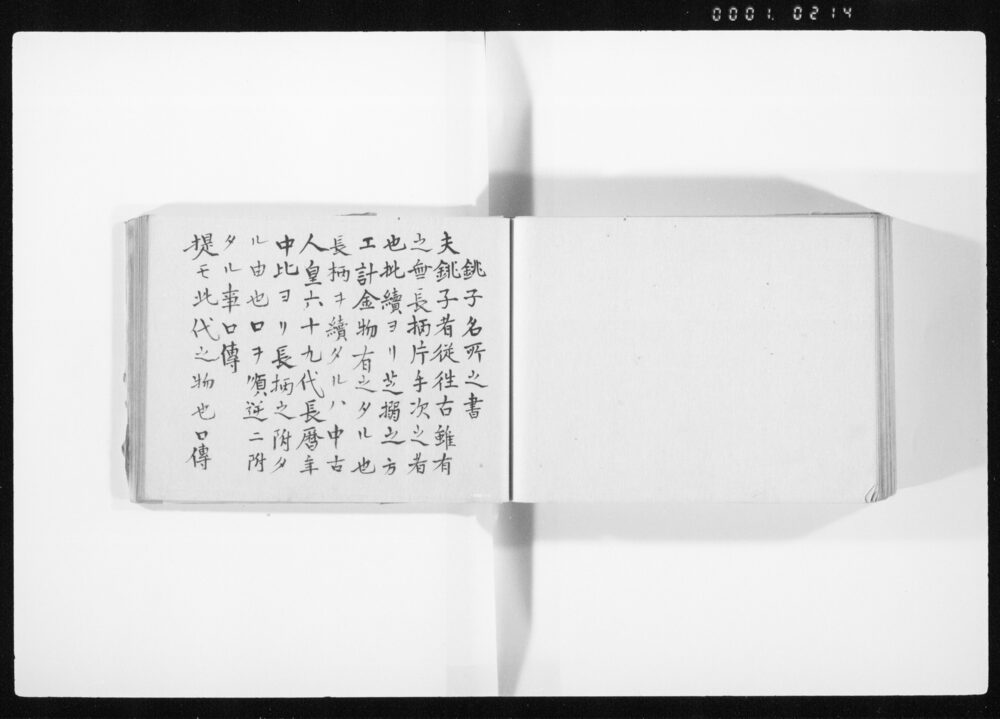 0001. 0214
銚子名所之書
夫銚子者従徃古雖有
之無長柄片手次之者
也此續ヨリ之搦之方
エ計金物有之タル也
長柄ヲ續タルハ中古
人皇六十九代長暦年
中比ヨリ長柄之附タ
ル由也口ヲ順逆ニ附
タル事口傳
提モ此代之物也口傳